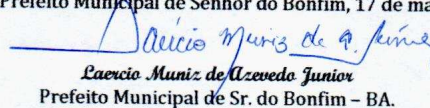 Prefeito Municipal de Senhor do Bonfim, 17 de ma
Laercio Muniz de A. Júnior
Laercio Muniz de Azevedo Junior
Prefeito Municipal de Sr. do Bonfim – BA.